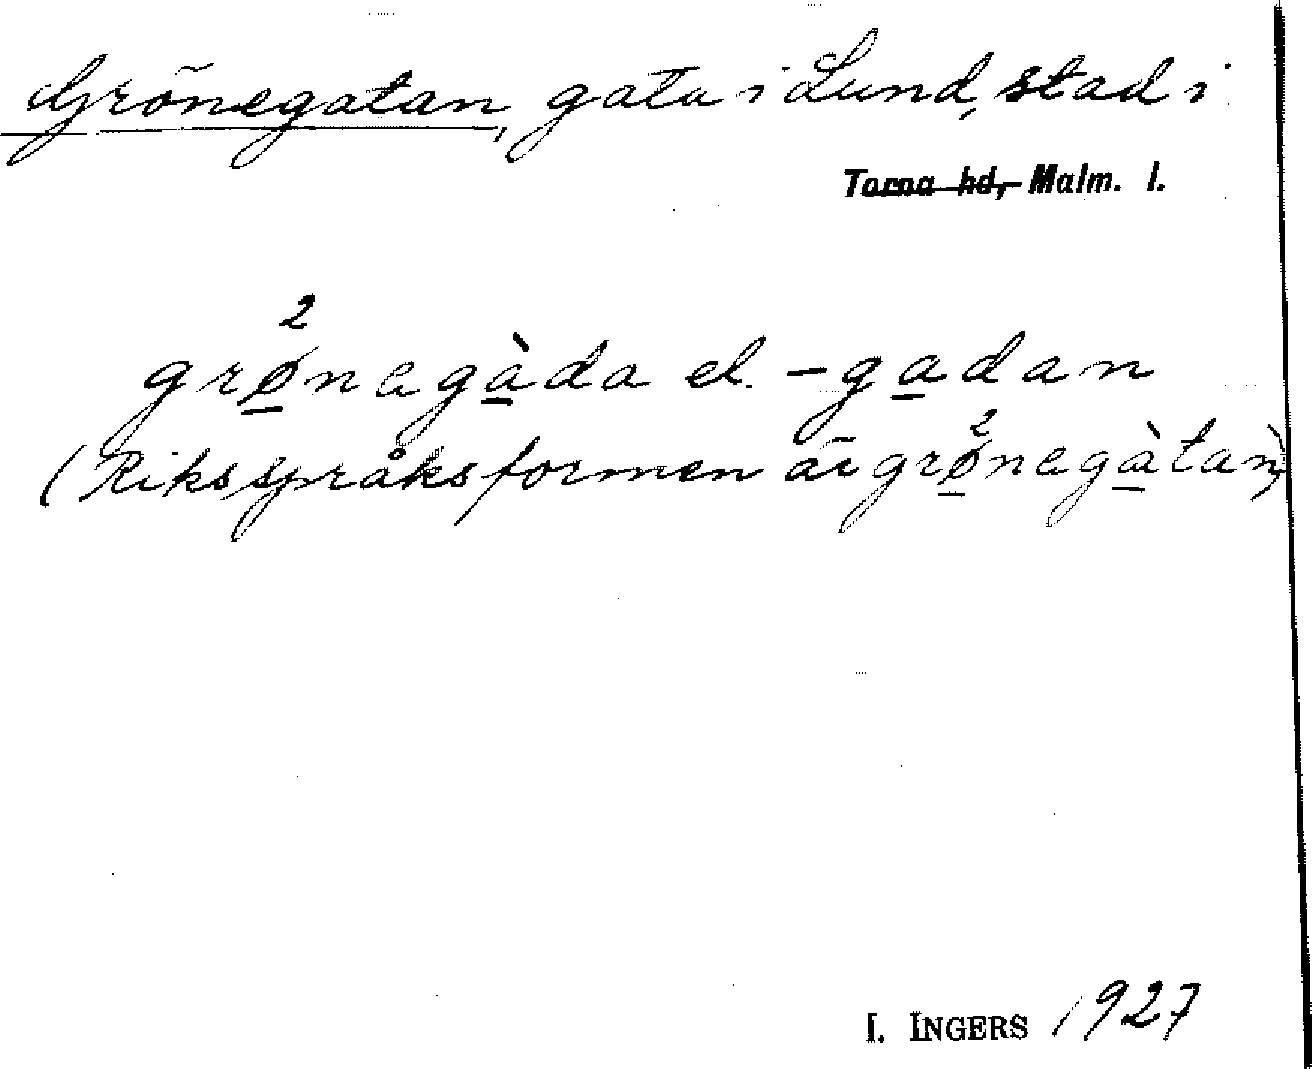 Grönegatan, gata i Lund, stad i
Torna hd, Malm. l.
grø̱²nagà̱da el. -ga̱dan
(Riksspråksformen är grø̱²negà̱tan)
I. INGERS 1927